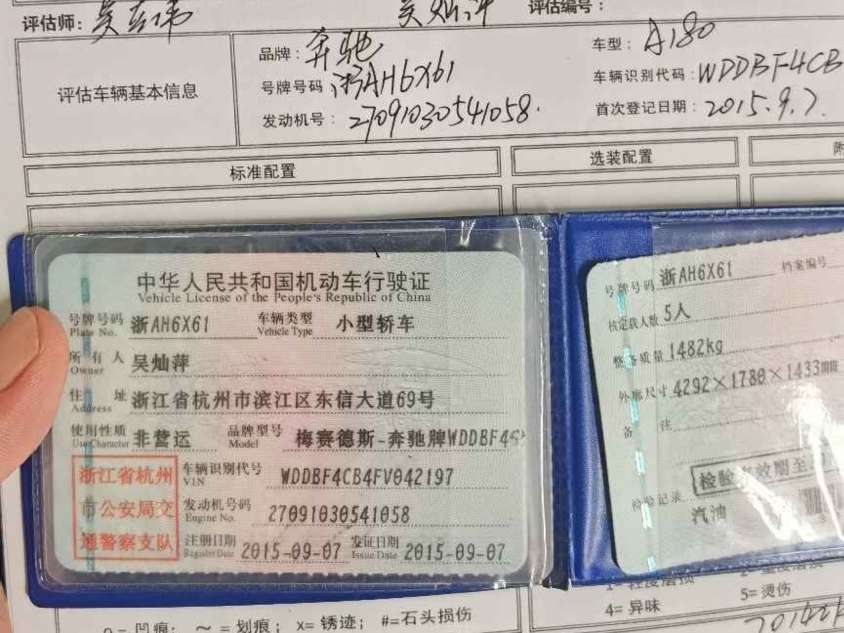 评估师:
评估编号:
评估车辆基本信息
品牌: 奔驰
车型: A180
号牌号码 浙AH6X61
车辆识别代码: WDDBF4CB
发动机号: 27091030541058.
首次登记日期: 2015.9.7
标准配置
选装配置
附
中华人民共和国机动车行驶证
Vehicle License of the People's Republic of China
号牌号码 浙AH6X61 车辆类型 小型轿车
Plate No. Vehicle Type
所有人 吴灿萍
Owner
住址 浙江省杭州市滨江区东信大道69号
Address
使用性质 非营运 品牌型号 梅赛德斯-奔驰牌WDDBF4
Use Character Model
浙江省杭州
市公安局交
通警察支队
车辆识别代号 WDDBF4CB4FV042197
VIN
发动机号码 27091030541058
Engine No.
注册日期 2015-09-07 发证日期 2015-09-07
Register Date Issue Date
号牌号码 浙AH6X61 档案编号
核定载人数 5人
整备质量 1482kg
外廓尺寸 4292×1780×1433
备注
检验有效期至
检验记录
汽油
4= 异味 5= 烫伤
= 凹痕; ~ = 划痕; ×= 锈迹; #=石头损伤